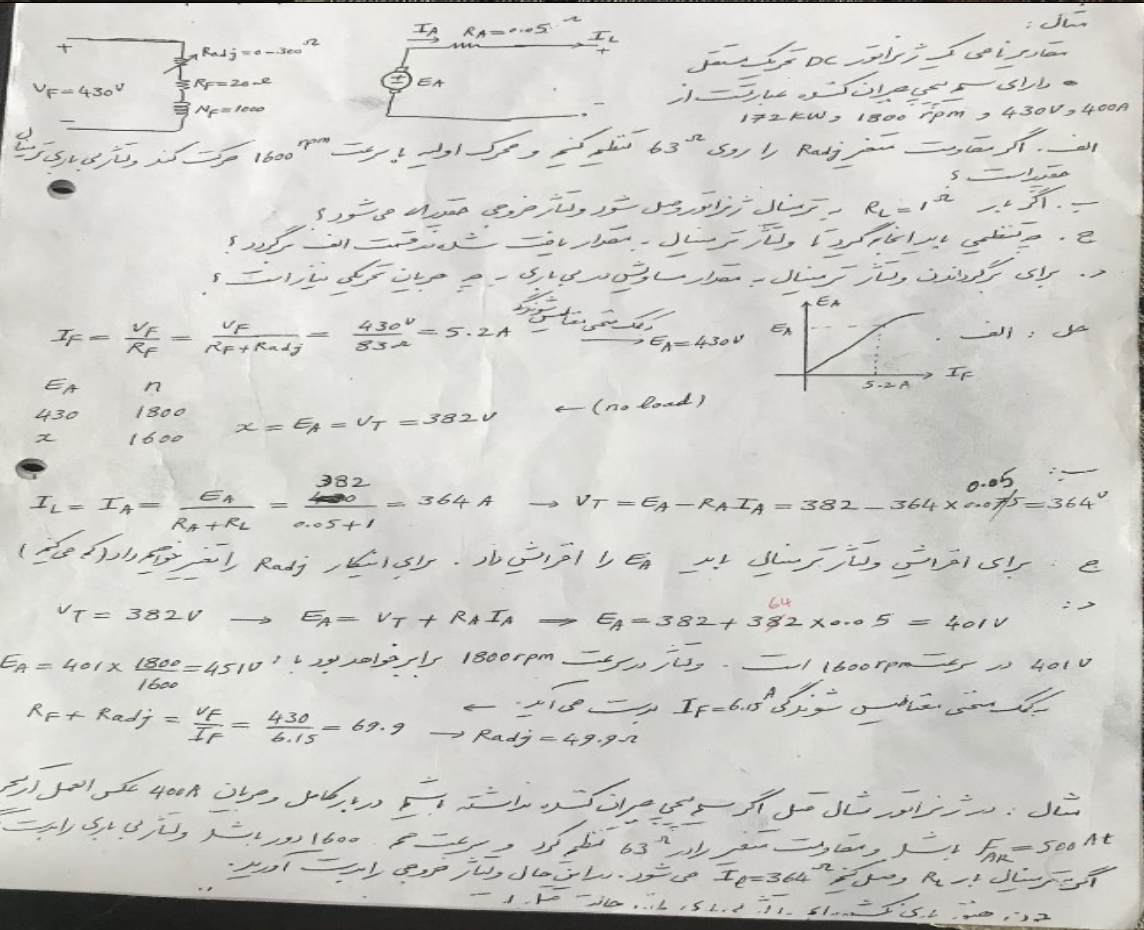 مثال :
مقادیر نامی یک ژنراتور DC تحریک مستقل
دارای سیم پیچی جبران کننده عبارتست از
172kW و 1800 rpm و 430V و 400A
+
VF = 430V
−
Radj = 0-300Ω
RF = 20Ω
NF = 1000
IA RA = 0.05Ω IL
+
EA
−
الف . اگر مقاومت متغیر Radj را روی 63Ω تنظیم کنیم و محرک اولیه با سرعت 1600rpm حرکت کند ولتاژ بی باری ترمینال
چقدر است ؟
ب . اگر بار RL = 1Ω به ترمینال ژنراتور وصل شود ولتاژ خروجی چقدر می شود ؟
ج . چه تنظیمی باید انجام گیرد تا ولتاژ ترمینال به مقدار یافت شده در قسمت الف برگردد ؟
د . برای برگرداندن ولتاژ ترمینال به مقدار مساویش در بی باری به چه جریان تحریکی نیاز است ؟
حل : الف .
EA
EA
5.2A IF
IF = VF/RF = VF/(RF + Radj) = 430V/83Ω = 5.2A به کمک منحنی مغناطیس شوندگی → EA = 430V
EA n
430 1800
x 1600
x = EA = VT = 382V ← (no load)
ب :
IL = IA = EA/(RA + RL) = 382/(0.05 + 1) = 364 A → VT = EA − RA IA = 382 − 364 × 0.05 = 364V
ج . برای افزایش ولتاژ ترمینال باید EA را افزایش داد . برای اینکار Radj را تغییر خواهیم داد (کم می کنیم)
د :
VT = 382V → EA = VT + RA IA ⇒ EA = 382 + 364 × 0.05 = 401V
401V در سرعت 1600rpm است . ولتاژ در سرعت 1800rpm برابر خواهد بود با : EA = 401 × 1800/1600 = 451V
به کمک منحنی مغناطیس شوندگی IF = 6.15A بدست می آید ←
RF + Radj = VF/IF = 430/6.15 = 69.9 → Radj = 49.9Ω
مثال : در ژنراتور مثال قبل اگر سیم پیچی جبران کننده نداشته باشیم در بار کامل و جریان 400A عکس العمل آرمیچر
FAR = 500At باشد و مقاومت متغیر را در 63Ω تنظیم کرد و سرعت هم 1600 دور باشد ولتاژ بی باری را بدست
اگر به ترمینال بار RL وصل کنیم 364 می شود . در این حال ولتاژ خروجی را بدست آورید .